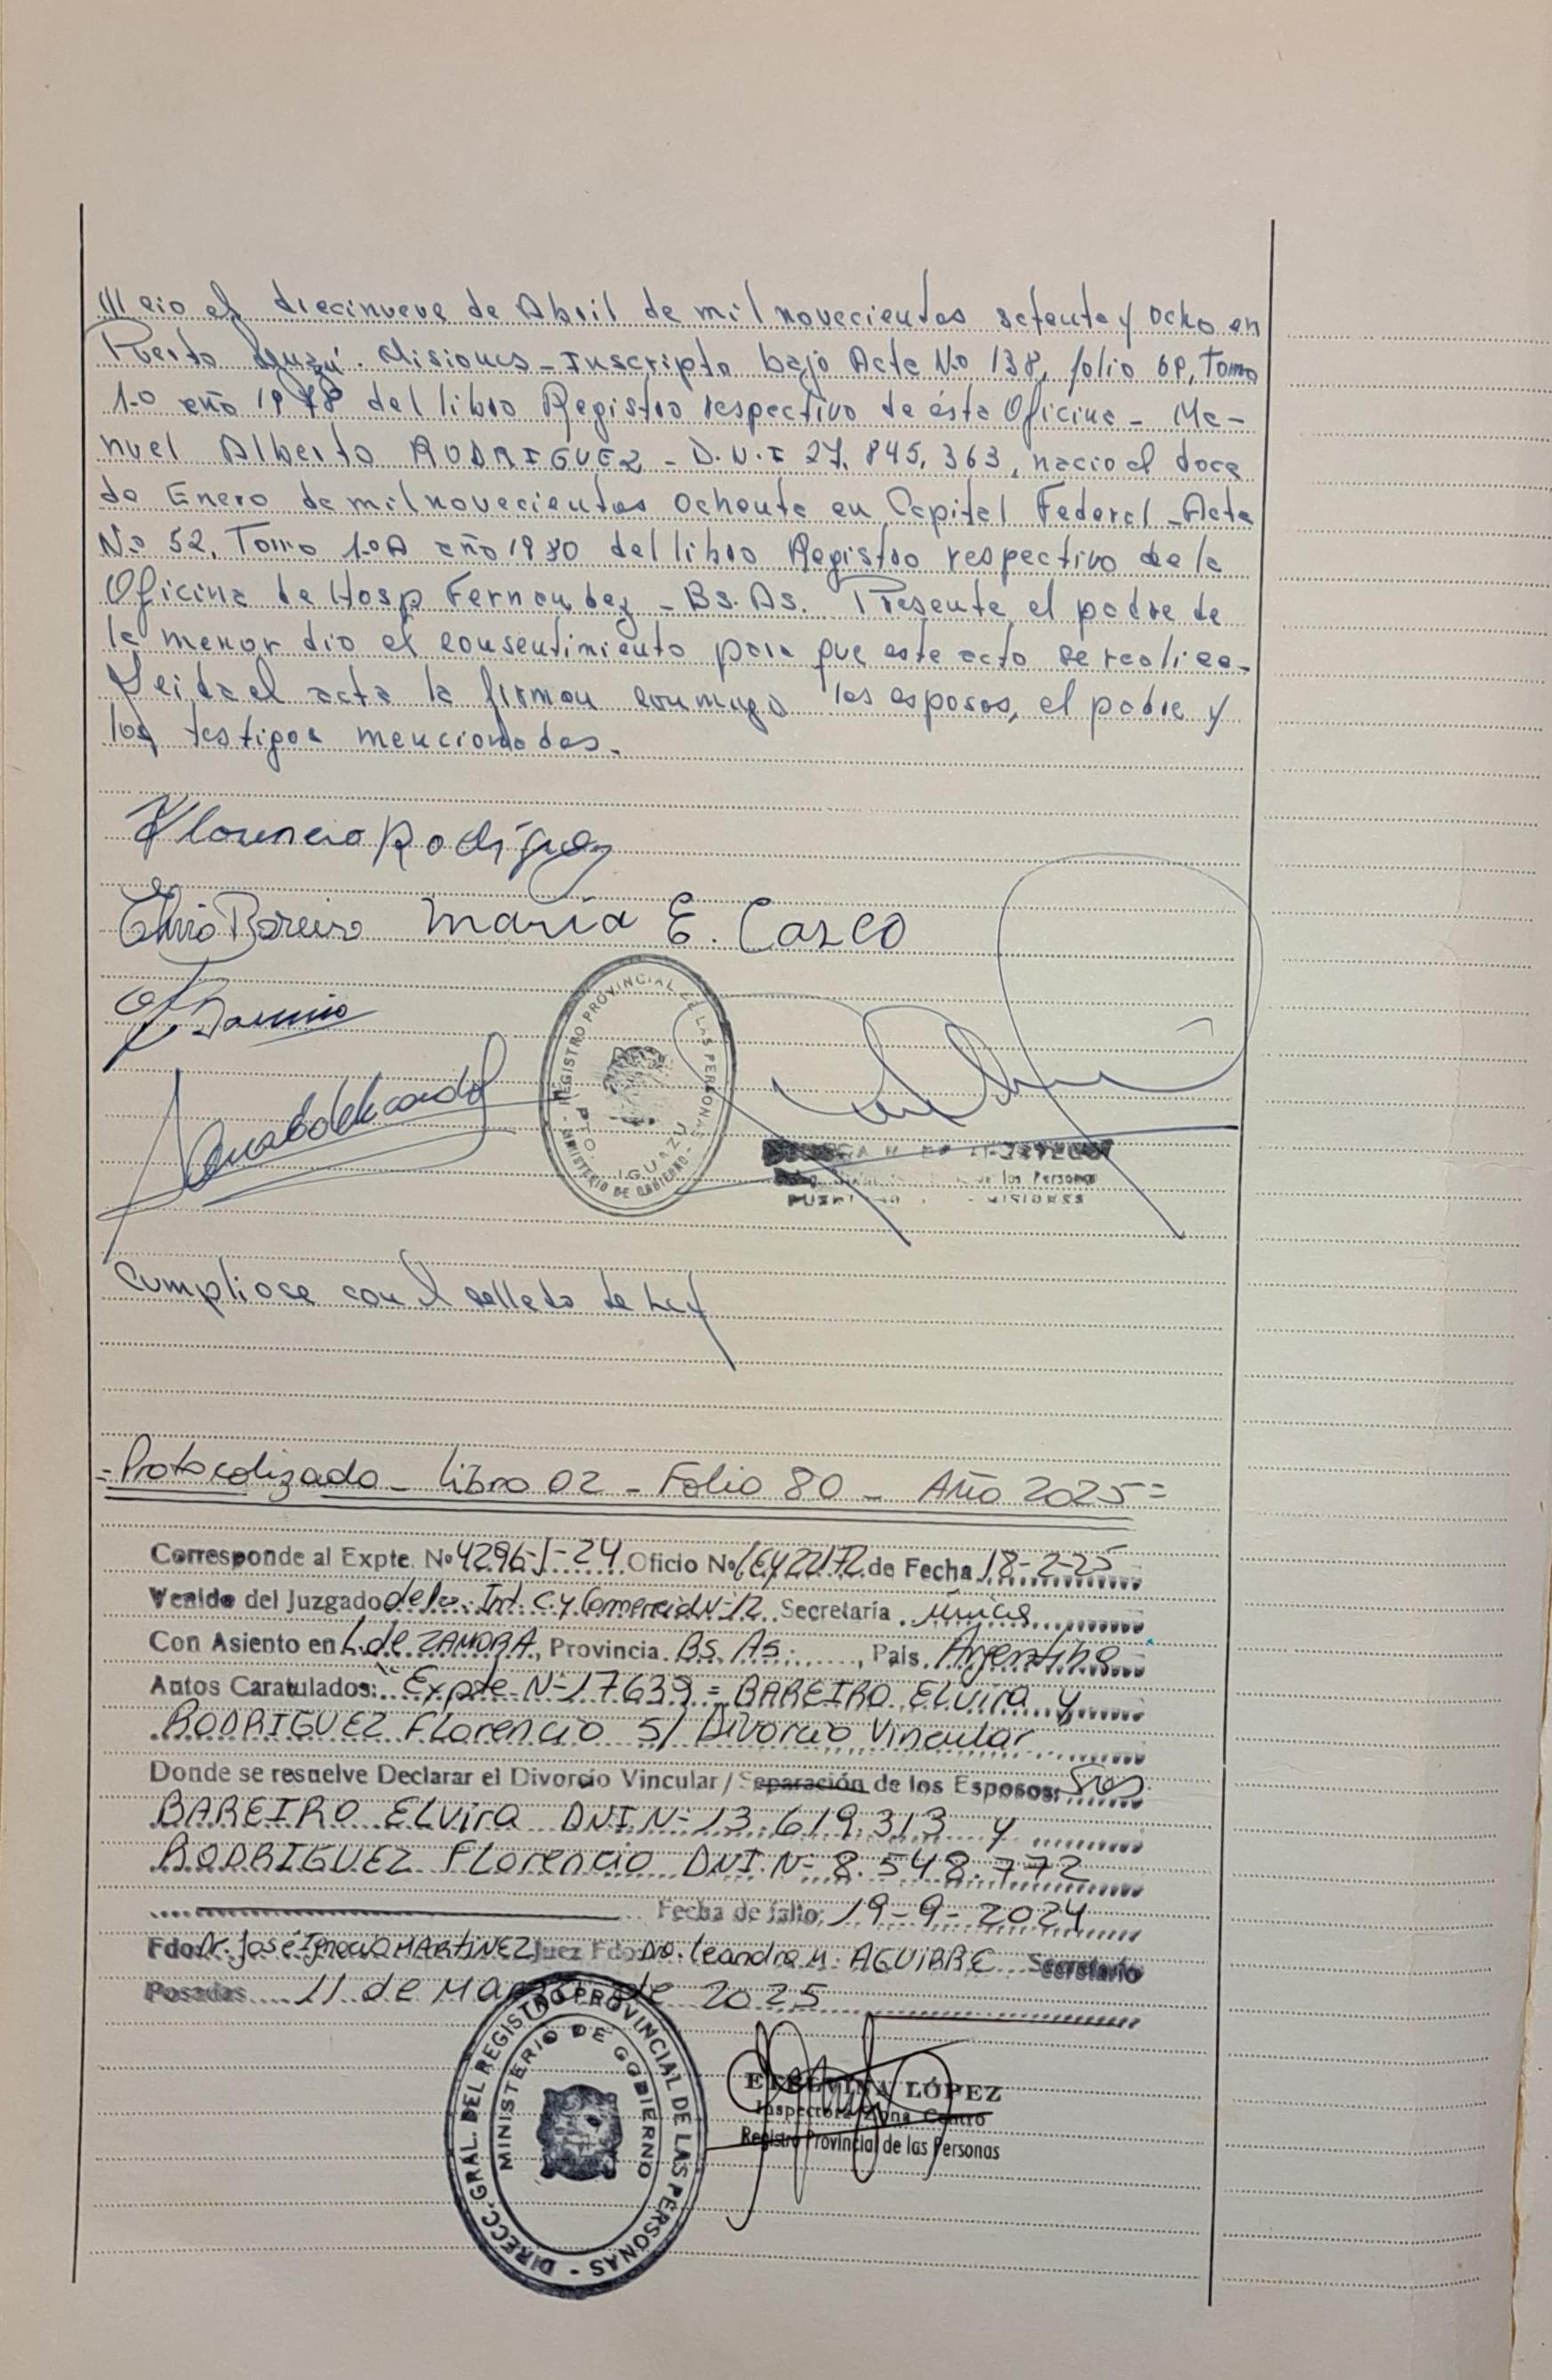 /// cio el diecinueve de Abril de mil novecientos setenta y ocho en
Puerto Iguazú. Misiones - Inscripta bajo Acta No 138, folio 69, Tomo
1.o año 1978 del libro Registro respectivo de ésta Oficina - Ma-
nuel Alberto RODRIGUEZ - D.N.I 27.845.363, nacio el doce
de Enero de mil novecientos ochenta en Capital Federal - Acta
No 52, Tomo 1.oA año 1980 del libro Registro respectivo de la
Oficina de Hosp Fernandez - Bs. As. Presente el padre de
la menor dio el consentimiento para que este acto se realice.
Leida el acta la firman conmigo los esposos, el padre y
los testigos mencionados.
Florencio Rodríguez
Elvira Bareiro María E. Casco
REGISTRO PROVINCIAL DE LAS PERSONAS
PTO. IGUAZU
MINISTERIO DE GOBIERNO
de las Persona
MISIONES
Cumpliose con el sellado de Ley
= Protocolizado - Libro 02 - Folio 80 - Año 2025 =
Corresponde al Expte. No 4296-I-24 Oficio No de Fecha 18-2-25
Venido del Juzgado de 1a. Int. C. y Comercial N-12 Secretaría única
Con Asiento en L. de ZAMORA, Provincia. Bs. As. , País. Argentina
Autos Caratulados: Expte N-17639 = BAREIRO Elvira y
RODRIGUEZ Florencio S/ Divorcio Vincular
Donde se resuelve Declarar el Divorcio Vincular / Separación de los Esposos: Sres
BAREIRO Elvira DNI N- 13.619.313 y
RODRIGUEZ Florencio DNI. N- 8.548.772
Fecha de fallo: 19-9-2024
Fdo: Dr. José Ignacio MARTINEZ Juez Fdo: Dro. Leandro M. AGUIRRE Secretario
Posadas 11 de Marzo de 2025
DIRECC. GRAL. DEL REGISTRO PROVINCIAL DE LAS PERSONAS
MINISTERIO DE GOBIERNO
LÓPEZ
Inspectora Zona Centro
Registro Provincial de las Personas